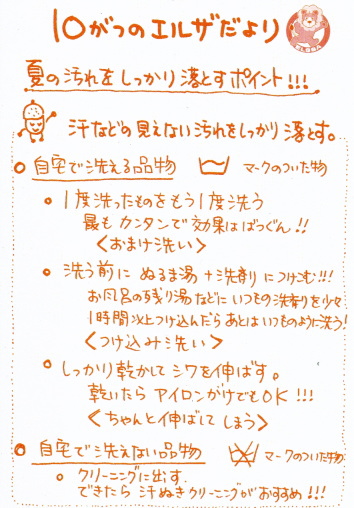 10がつのエルザだより
ELOHA
夏の汚れをしっかり落とすポイント!!!
汗などの見えない汚れをしっかり落とす。
自宅で洗える品物 マークのついた物
1度洗ったものをもう1度洗う
最もカンタンで効果はばつぐん!!
<おまけ洗い>
洗う前にぬるま湯+洗剤につけこむ!!!
お風呂の残り湯などにいつもの洗剤を少々
1時間以上つけ込んだらあとはいつものように洗う!
<つけ込み洗い>
しっかり乾かしてシワを伸ばす。
乾いたらアイロンがけでもOK!!!
<ちゃんと伸ばしてしまう>
自宅で洗えない品物 マークのついた物
クリーニングに出す
できたら汗ぬきクリーニングがおすすめ!!!